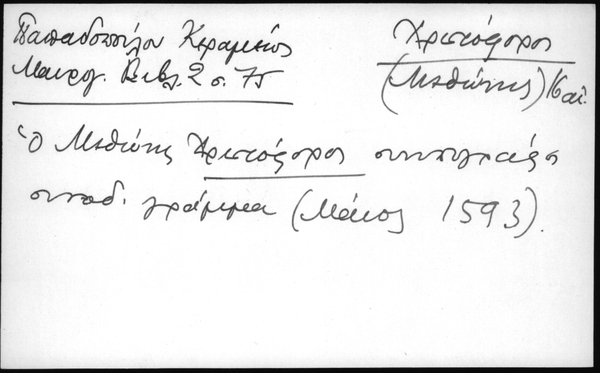 Παπαδοπούλου Κεραμέως
Μαυρογ. Βιβλ. 2 σ. 75
Χριστόφορος
(Μεθώνης) 16 αἰ.
Ὁ Μεθώνης Χριστόφορος συνυπογράφει
συνοδ. γράμμα (Μάιος 1593).